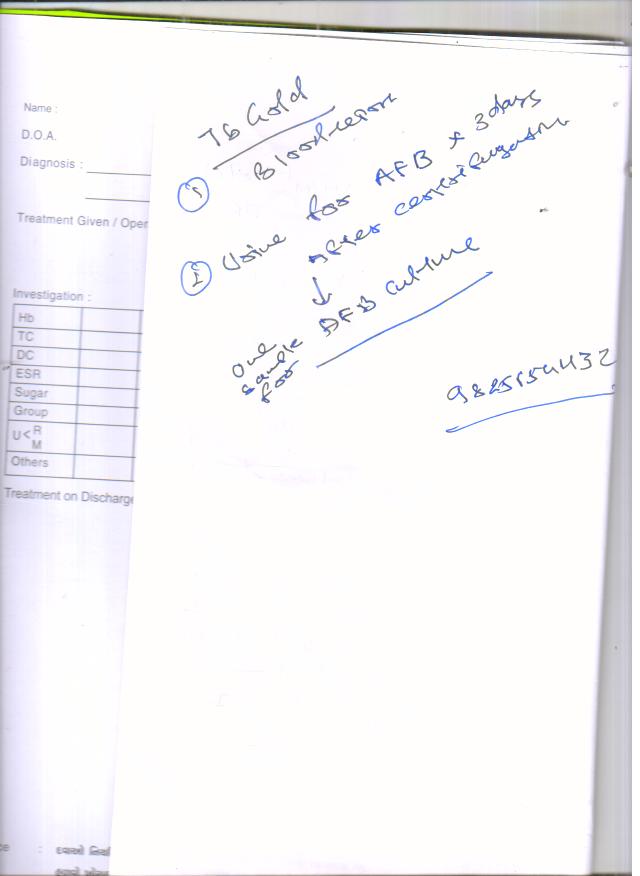 Name :
D.O.A.
Diagnosis :
Treatment Given / Oper
Investigation :
Hb
TC
DC
ESR
Sugar
Group
U< R
M
Others
Treatment on Discharge
TB Gold
① Blood report
② Urine for AFB x 3 days
after centrifugation
↓
one sample for AFB culture
9825154432
: દવાઓ નિયમિ